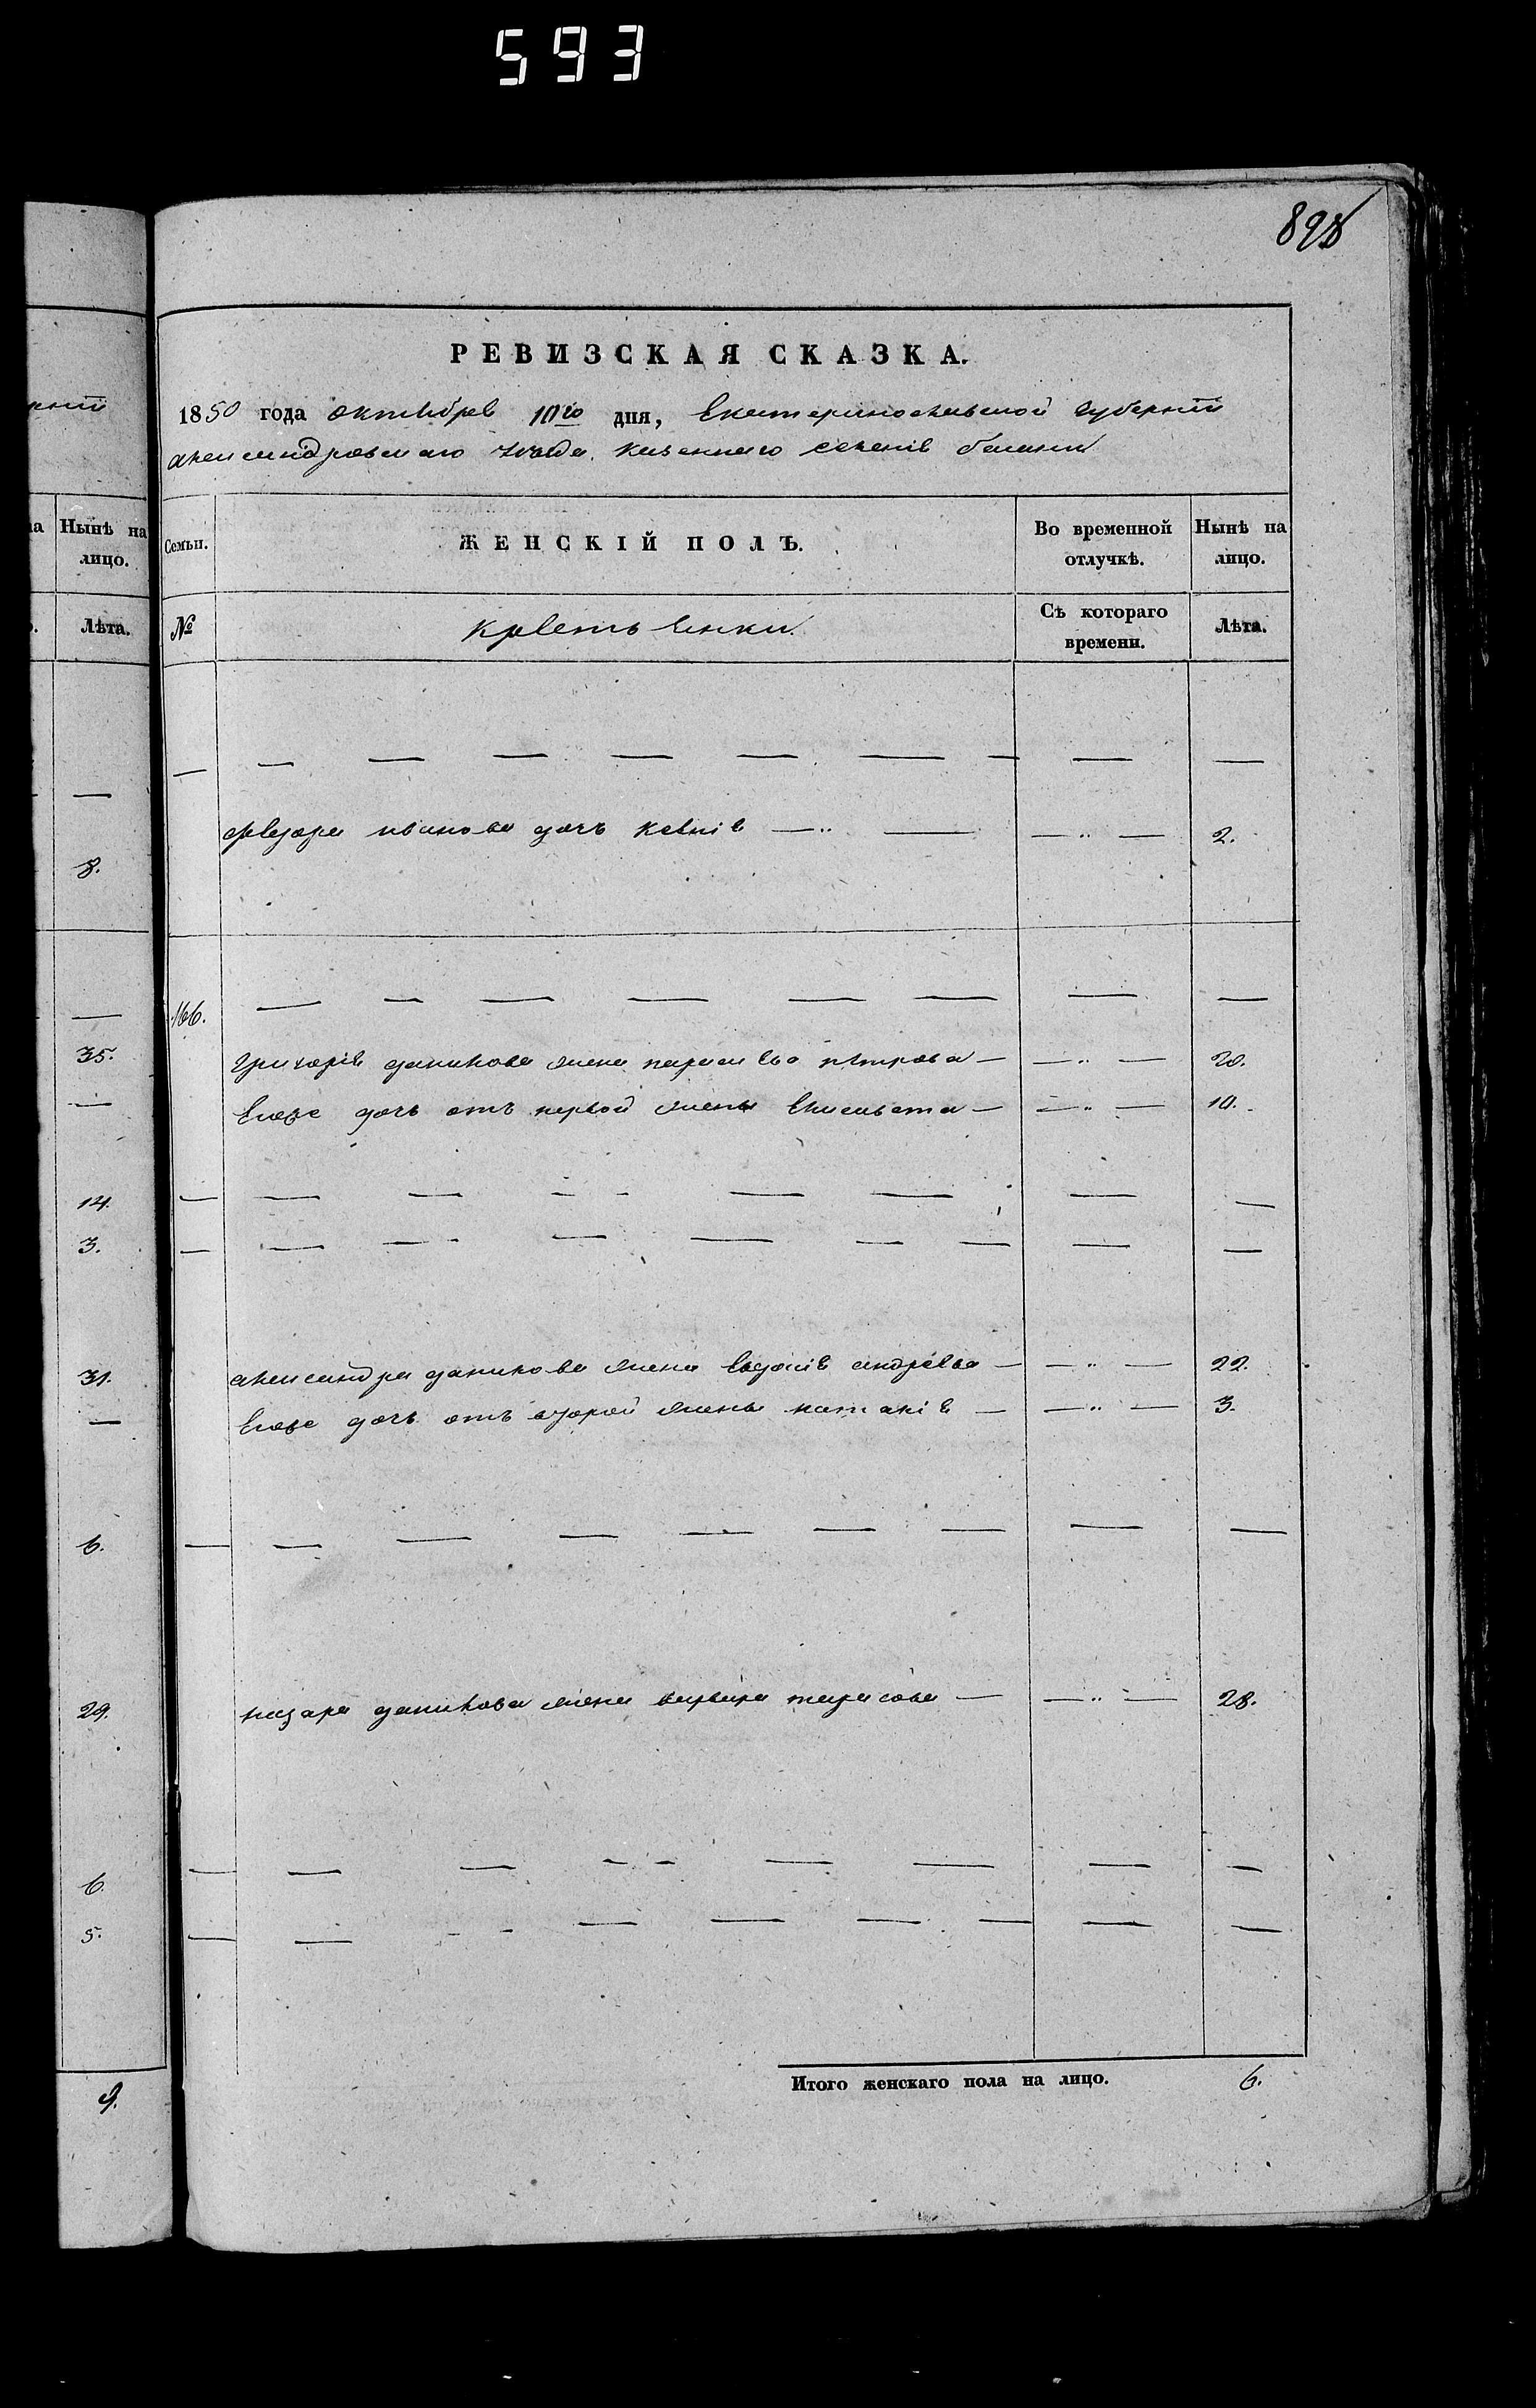 593
898
РЕВИЗСКАЯ СКАЗКА.
1850 года октября 10го дня, Екатеринославской губернии
Александровскаго уезда казеннаго селения
Семьи.
ЖЕНСКІЙ ПОЛЪ.
Во временной отлучкѣ.
Нынѣ на лицо.
№
Крестьянки.
Съ котораго времени.
Лѣта.
— — — — — — — — — —
Федора Иванова дочь Ксения — „ — — „ — 2.
166. — — — — — — — —
Григория Данилова жена Параскева Петрова — — „ — 20.
Егоже дочь отъ первой жены Елисавета — — „ — 10.
— — — — — — — — —
— — — — — — — — — —
Александра Данилова жена Евдокия Андреева — — „ — 22.
Егоже дочь отъ второй жены Наталия — — „ — 3.
— — — — — — — — —
Назара Данилова жена Варвара Тарасова — — „ — 28.
— — — — — — — — —
— — — — — — — — — —
Итого женскаго пола на лицо. 6.
Нынѣ на лицо.
Лѣта.
—
8.
—
35.
—
14.
3.
31.
—
6.
29.
6.
5.
9.